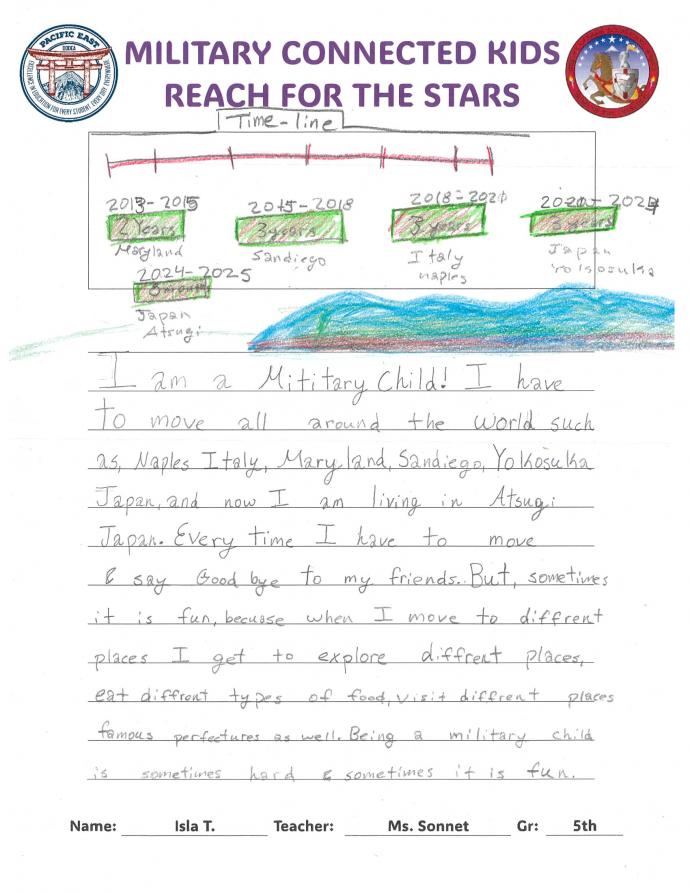 PACIFIC EAST
DODEA
EXCELLENCE IN EDUCATION FOR EVERY STUDENT, EVERY DAY, EVERYWHERE
MILITARY CONNECTED KIDS
REACH FOR THE STARS
Time-line
2013-2015 2015-2018 2018-2021 2024
2 Years 3 years 3 years 3 years
Maryland Sandiego Italy Japan
naples Yokosuka
2024-2025
Japan
Atsugi
I am a Mititary Child! I have
to move all around the world such
as, Naples Italy, Maryland, Sandiego, Yokosuka
Japan, and now I am living in Atsugi
Japan. Every time I have to move
& say Good bye to my friends. But, sometimes
it is fun, becuase when I move to diffrent
places I get to explore diffrent places,
eat diffrent types of food, visit diffrent places
famous perfectures as well. Being a military child
is sometimes hard & sometimes it is fun.
Name: Isla T. Teacher: Ms. Sonnet Gr: 5th